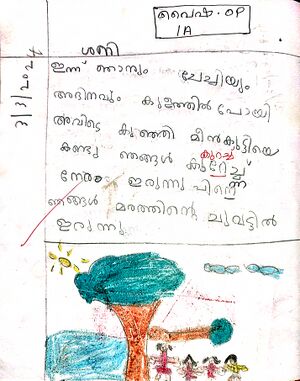 വൈഷ. OP
1A
3/3/2024
ശനി
ഇന്ന് ഞാനും ചേച്ചിയും
അദിനവും കുളത്തിൽ പോയി
അവിടെ കുഞ്ഞി മീൻകുട്ടിയെ
കണ്ടു ഞങ്ങൾ കുറച്ച്
നേരം ഇരുന്നു പിന്നെ
ഞങ്ങൾ മരത്തിന്റെ ചുവട്ടിൽ
ഇരുന്നു.